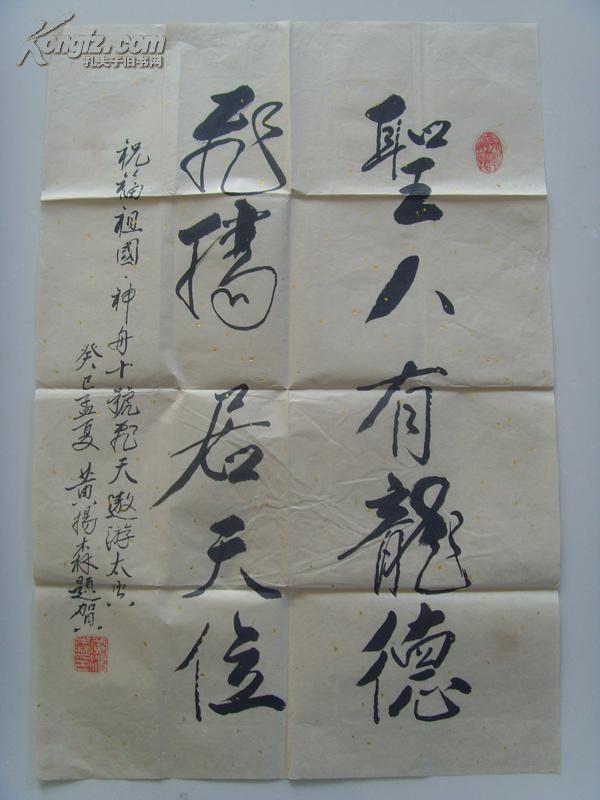 聖人有龍德
飛騰居天位
祝福祖國·神舟十號飛天遨游太空
癸巳孟夏 黄揚森題賀
Kongfz.com
孔夫子旧书网